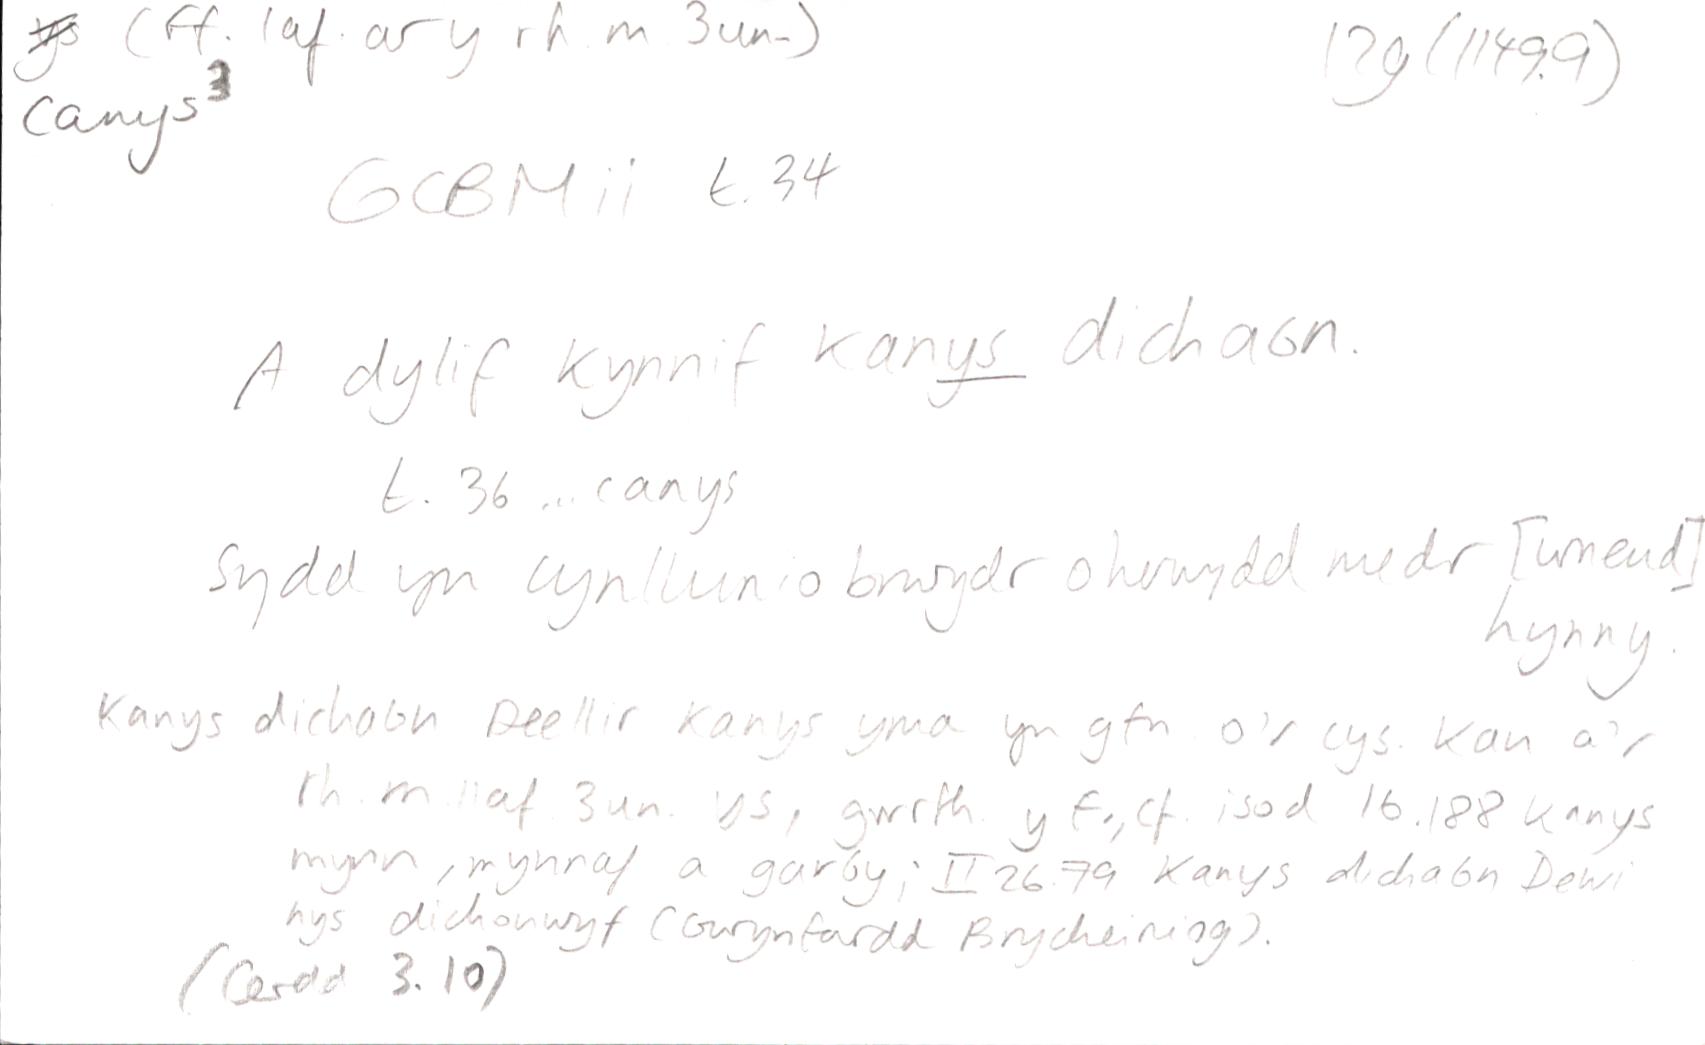 (ff. laf. ar y rh. m. 3un.)
12g (1149.9)
canys³
GCBM ii t. 34
A dylif kynnif kanys dichaỽn.
t. 36 ... canys
Sydd yn cynllunio brwydr oherwydd medr [wneud]
hynny.
Kanys dichaỽn Deellir kanys yma yn gfn. o'r cys. kan a'r
rh. m. laf. 3un. ys, gwrth. y f., cf. isod 16.188 kanys
mynn, mynnaf a garỽy; II 26.79 Kanys dichaỽn Dewi
nys dichonwyf (Gwynfardd Brycheiniog).
(Cerdd 3.10)